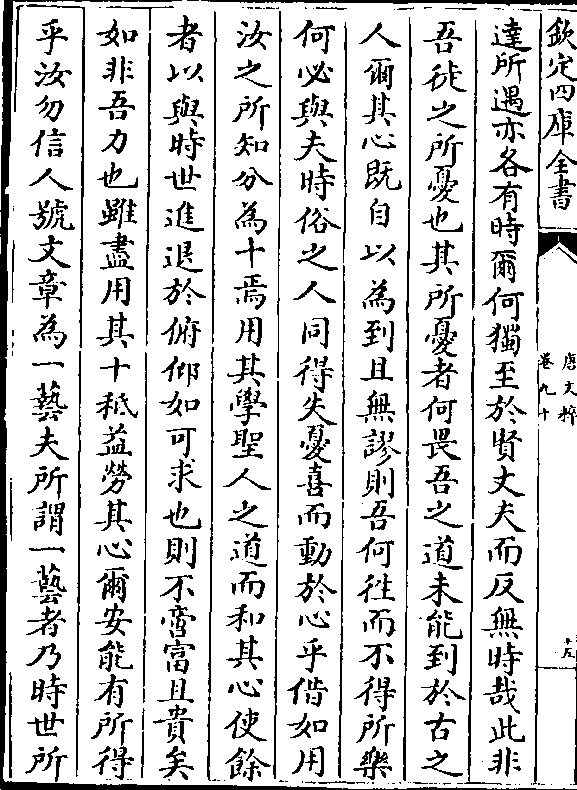 欽定四庫全書
唐文粹
卷九十
十五
達所遇亦各有時爾何獨至於賢丈夫而反無時哉此非
吾徒之所憂也其所憂者何畏吾之道未能到於古之
人爾其心既自以為到且無謬則吾何徃而不得所樂
何必與夫時俗之人同得失憂喜而動於心乎借如用
汝之所知分為十焉用其學聖人之道而和其心使餘
者以與時世進退於俯仰如可求也則不啻富且貴矣
如非吾力也雖盡用其十秪益勞其心爾安能有所得
乎汝勿信人號文章為一藝夫所謂一藝者乃時世所